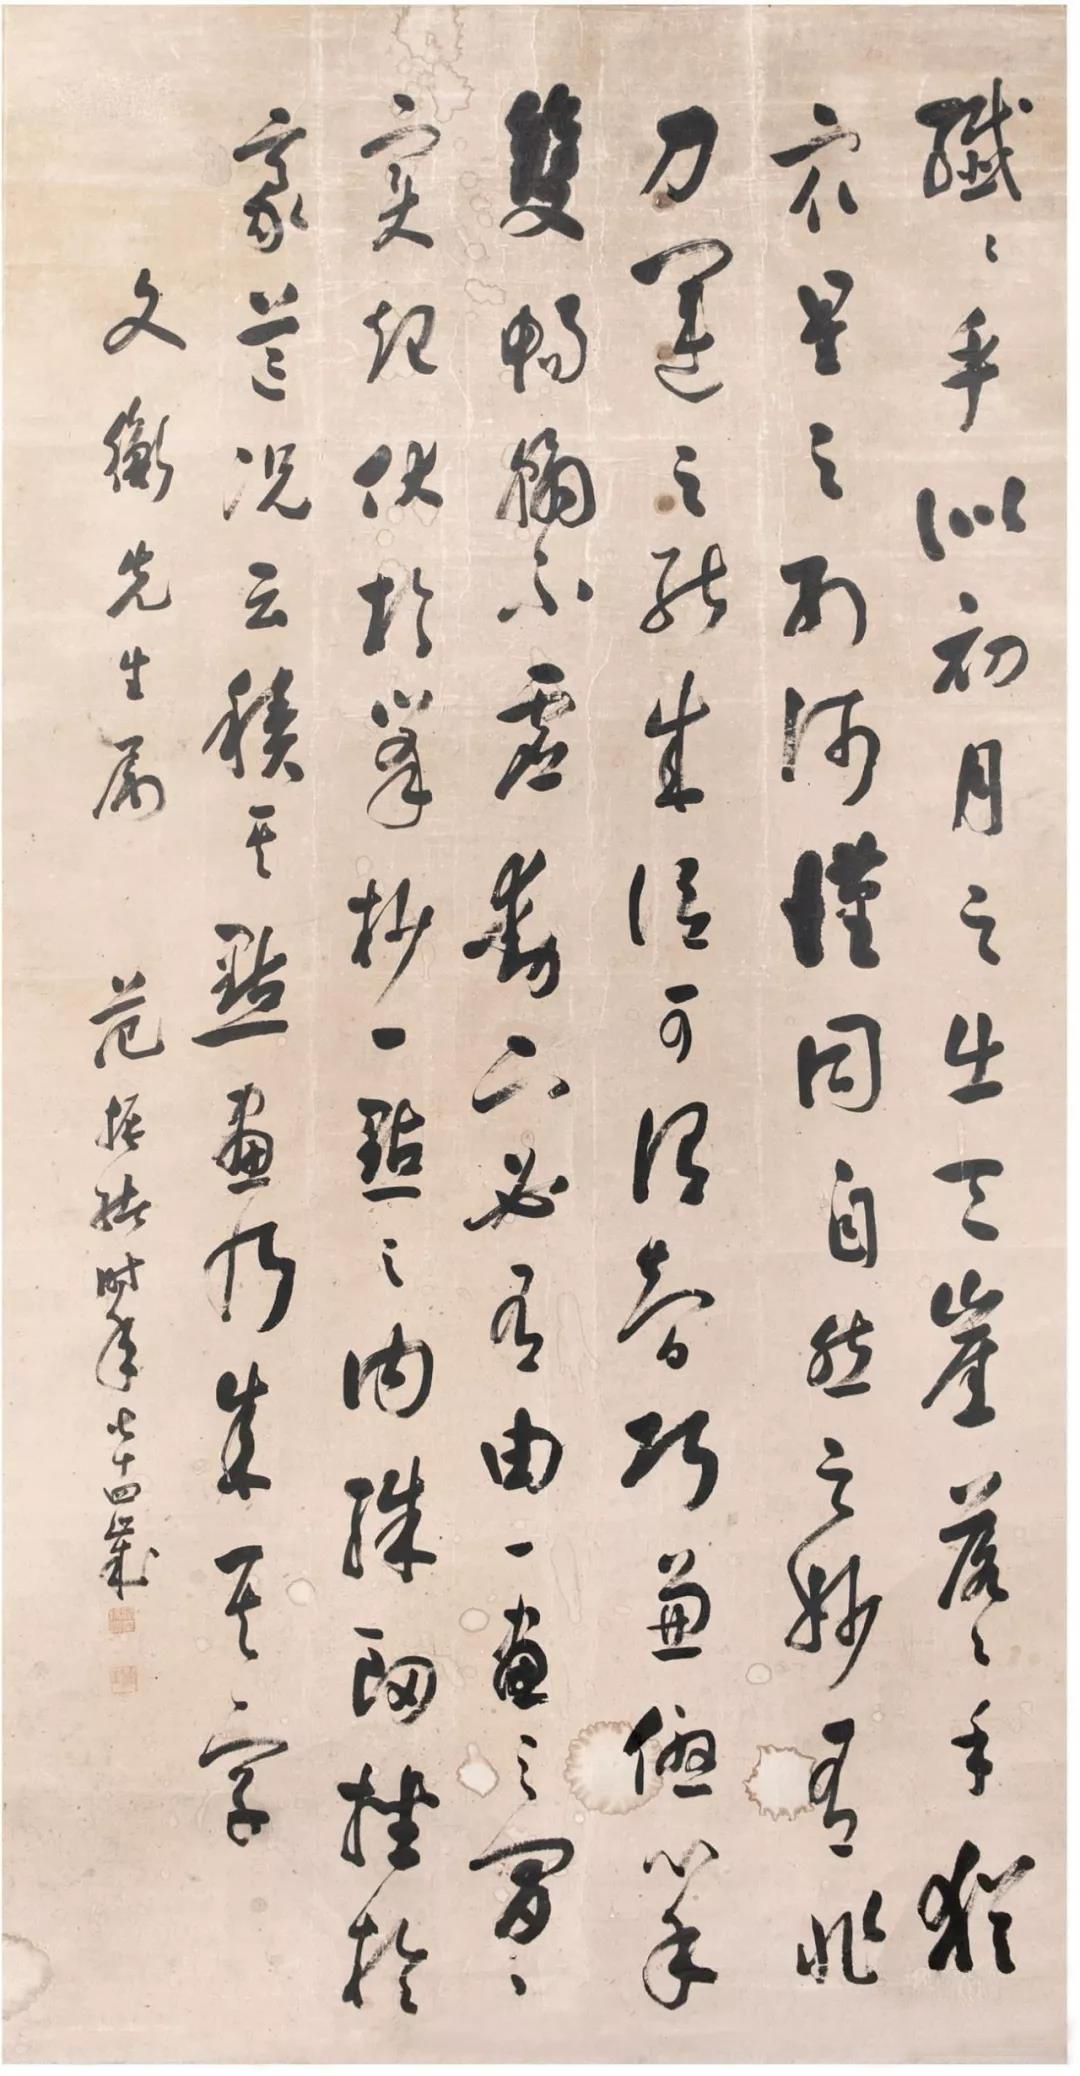 纖〻乎似初月之出天崖落〻乎猶
衆星之列河漢同自然之妙有非
力運之能成信可謂智巧兼優心手
雙暢翰不虛動下必有由一畫之間
變起伏於峯杪一點之內殊衄挫於
豪芒況云積其點畫乃成其字
文衡先生屬 范振緒時年七十四歲